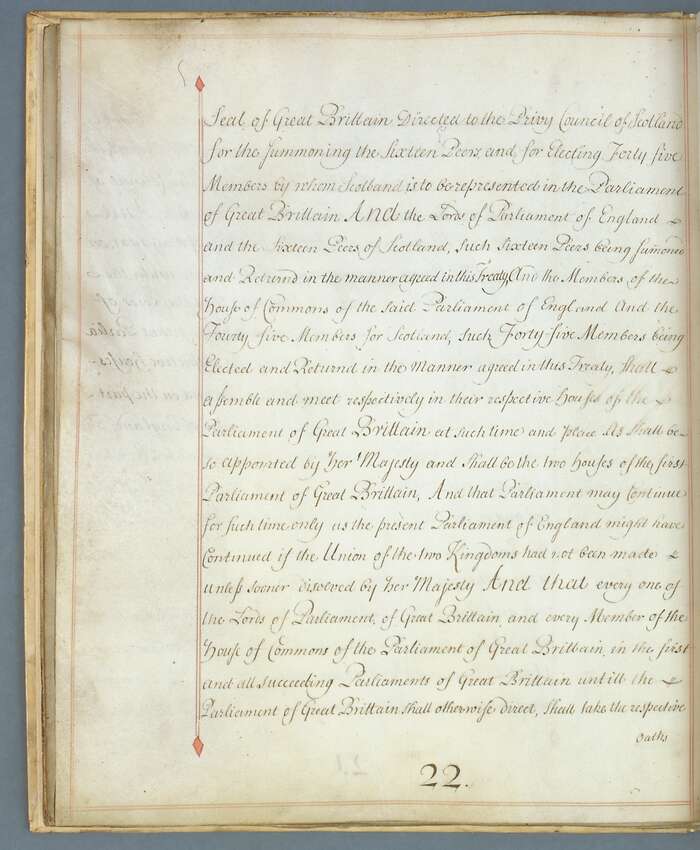 Seal of Great Brittain Directed to the Privy Council of Scotland
for the Summoning the Sixteen Peers and for Electing Forty five
Members by whom Scotland is to be represented in the Parliament
of Great Brittain And the Lords of Parliament of England
and the Sixteen Peers of Scotland, such Sixteen Peers being summoned
and Returnd in the manner agreed in this Treaty, And the Members of the
house of Commons of the said Parliament of England And the
Fourty five Members for Scotland, such Forty five Members being
Elected and Returnd in the Manner agreed in this Treaty, shall
assemble and meet respectively in their respective houses of the
Parliament of Great Brittain at such time and place As shall be
so appointed by her Majesty and shall be the two houses of the first
Parliament of Great Brittain, And that Parliament may Continue
for such time only as the present Parliament of England might have
Continued if the Union of the two Kingdoms had not been made
unless sooner disolved by her Majesty And that every one of
the Lords of Parliament, of Great Brittain, and every Member of the
house of Commons of the Parliament of Great Brittain, in the first
and all succeeding Parliaments of Great Brittain untill the
Parliament of Great Brittain shall otherwise direct, shall take the respective
oaths
22.